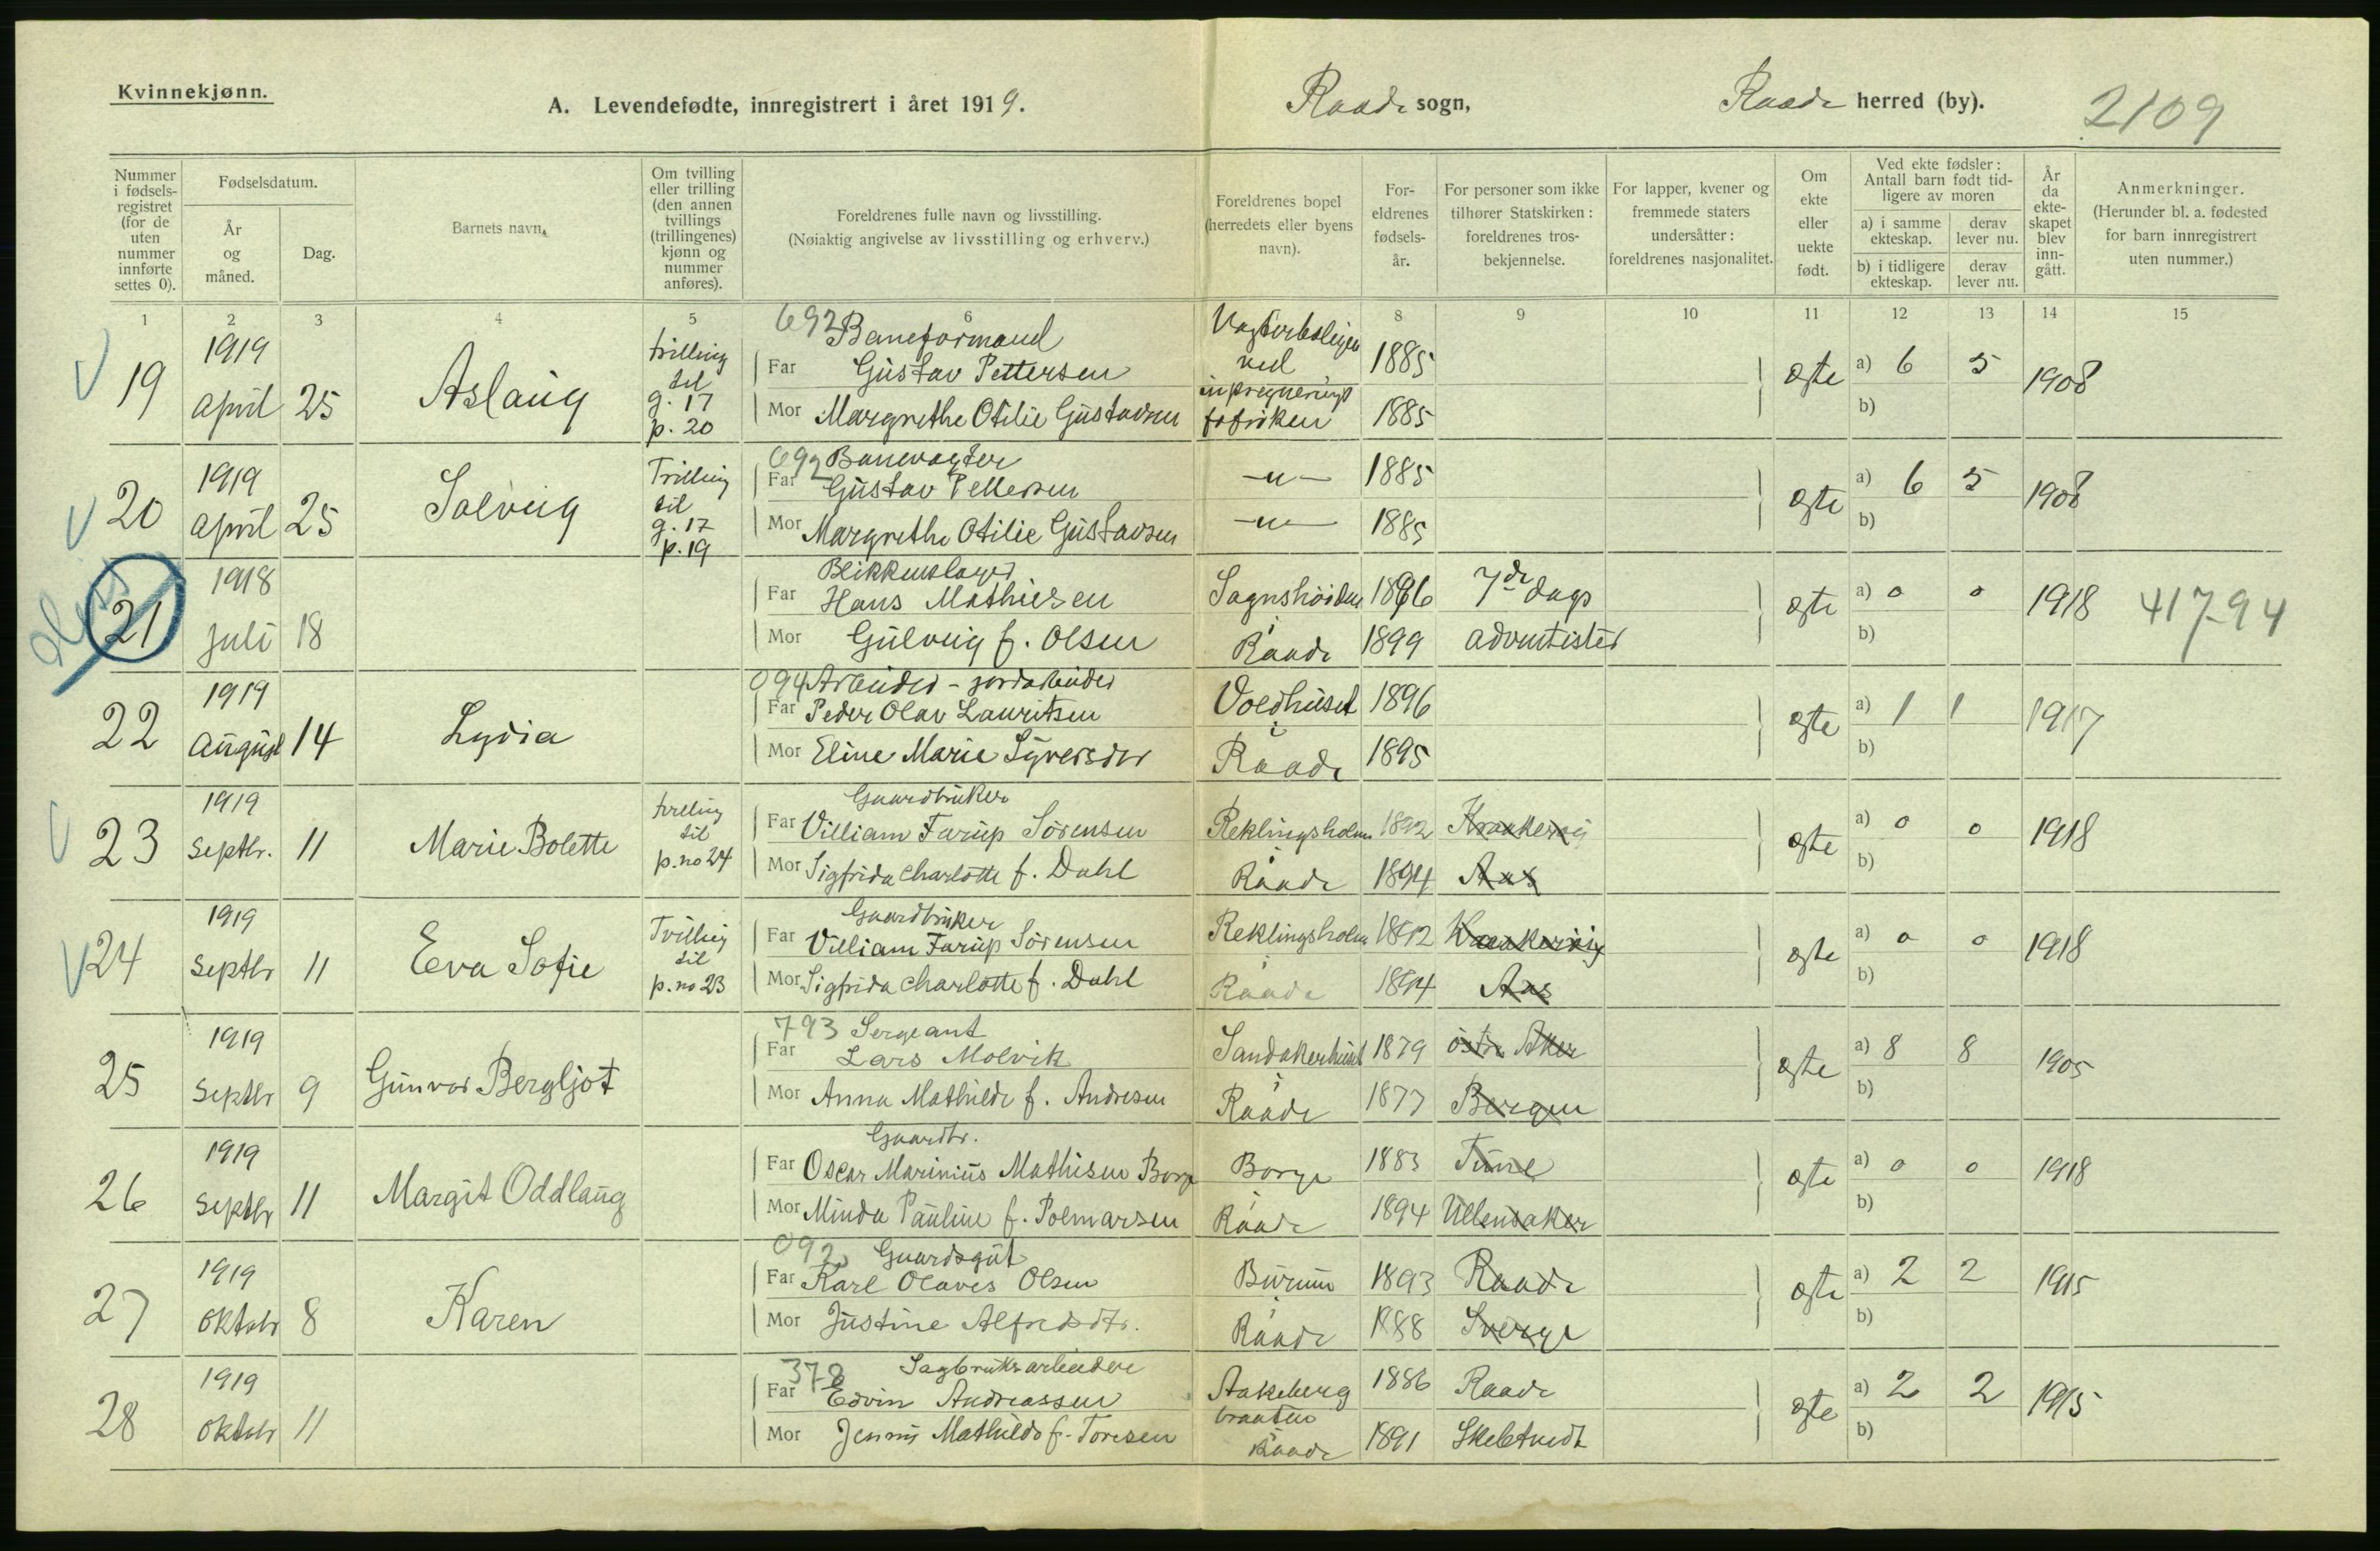 Kvinnekjønn.
A. Levendefødte, innregistrert i året 1919.
Raade sogn,
Raade herred (by).
2109
Nummer i fødsels-registret (for de uten nummer innførte settes 0).
Fødselsdatum.
År og måned.
Dag.
Barnets navn.
Om tvilling eller trilling (den annen tvillings (trillingenes) kjønn og nummer anføres).
Foreldrenes fulle navn og livsstilling.
(Nøiaktig angivelse av livsstilling og erhverv.)
Foreldrenes bopel (herredets eller byens navn).
For-eldrenes fødsels-år.
For personer som ikke tilhører Statskirken: foreldrenes tros-bekjennelse.
For lapper, kvener og fremmede staters undersåtter: foreldrenes nasjonalitet.
Om ekte eller uekte født.
Ved ekte fødsler: Antall barn født tid-ligere av moren
a) i samme ekteskap.
derav lever nu.
b) i tidligere ekteskap.
derav lever nu.
År da ekte-skapet blev inn-gått.
Anmerkninger.
(Herunder bl. a. fødested for barn innregistrert uten nummer.)
1 2 3 4 5 6 8 9 10 11 12 13 14 15
692 Baneformand
19 1919 april 25 Aslaug trilling til g. 17 p. 20
Far Gustav Pettersen ved 1885 ægte a) 6 5 1908
Mor Margrethe Otilie Gustavsen fabriken 1885 b)
692 Banevagter
20 1919 april 25 Solveig Trilling til g. 17 p. 19
Far Gustav Pettersen -"- 1885 ægte a) 6 5 1908
Mor Margrethe Otilie Gustavsen -"- 1885 b)
Blikkenslager
21 1918 juli 18
Far Hans Mathiesen Sognshöiden 1896 7de dags ægte a) 0 0 1918 417-94
Mor Gulveig f. Olsen i Raade 1899 adventister b)
094 Arbeider - jordarbeider
22 1919 august 14 Lydia
Far Peder Olav Lauritsen Voldhuset 1896 ægte a) 1 1 1917
Mor Eline Marie Syversdtr i Raade 1895 b)
Gaardbruker
23 1919 septbr. 11 Marie Bolette tvilling til p. no 24
Far Villiam Farup Sörensen Reklingsholm 1892 Kraakeröy ægte a) 0 0 1918
Mor Sigfrida Charlotte f. Dahl i Raade 1894 Aas b)
Gaardbruker
24 1919 septbr 11 Eva Sofie Tvilling til p. no 23
Far Villiam Farup Sörensen Reklingsholm 1892 Kraakeröy ægte a) 0 0 1918
Mor Sigfrida Charlotte f. Dahl i Raade 1894 Aas b)
793 Sergeant
25 1919 septbr 9 Gunvor Bergljot
Far Lars Molvik Sandakerhuset 1879 östre Aker ægte a) 8 8 1905
Mor Anna Mathilde f. Andresen i Raade 1877 Bergen b)
Gaardbr.
26 1919 septbr 11 Margit Oddlaug
Far Oscar Marinius Mathisen Borge Borge 1883 Tune ægte a) 0 0 1918
Mor Minda Pauline f. Polmarsen i Raade 1894 Ullensaker b)
092 Gaardsgut
27 1919 oktobr 8 Karen
Far Karl Olaves Olsen Burum 1893 Raade ægte a) 2 2 1915
Mor Justine Alfredsdtr. i Raade 1888 Sverge b)
378 Sagbruksarbeider
28 1919 oktobr 11
Far Edvin Andreassen Aakeberg braaten 1886 Raade ægte a) 2 2 1915
Mor Jenny Mathilde f. Toresen i Raade 1891 Skebtvedt b)